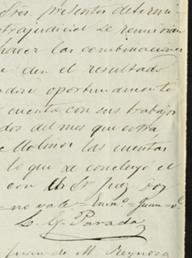 tres presentes determi-
trajudicial se reunirán
hacer las combinaciones
e den el resultado
odrá oportunamente
cuenta con sus trabajos
dos del mes que corre
Molinos las cuentas
lo que se concluyó el
con el Sr Juez doy
no vale =
L. G. Paradas
Juan de M. Reynosa